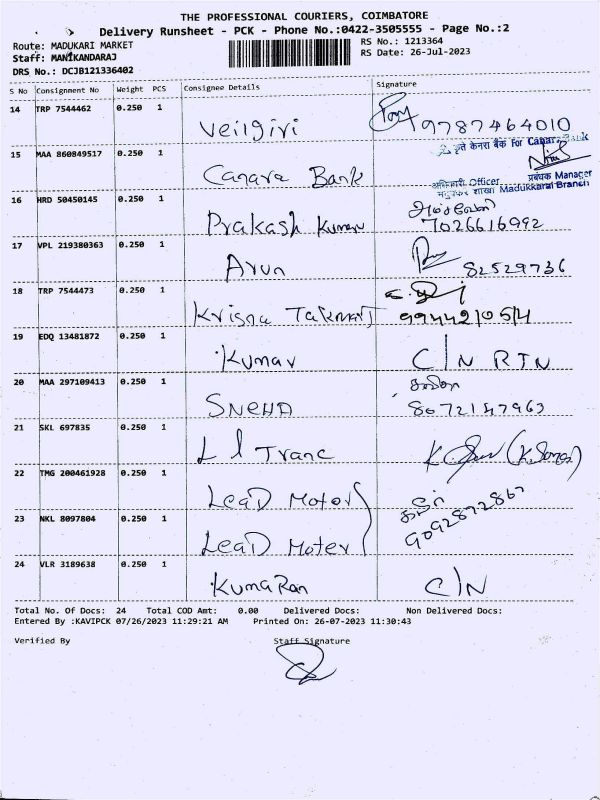 THE PROFESSIONAL COURIERS, COIMBATORE
Delivery Runsheet - PCK - Phone No.:0422-3505555 - Page No.:2
Route: MADUKARI MARKET
RS No.: 1213364
Staff: MANIKANDARAJ
RS Date: 26-Jul-2023
DRS No.: DCJB121336402
S No Consignment No Weight PCS Consignee Details Signature
14 TRP 7544462 0.250 1 Veilgiri 9787464010
15 MAA 860849517 0.250 1 Canara Bank
कृते केनरा बैंक For Canara Bank
अधिकारी Officer प्रबंधक Manager
शाखा Madukkarai Branch
16 HRD 50450145 0.250 1 Prakash Kumar 7026616992
17 VPL 219380363 0.250 1 Arun 82529736
18 TRP 7544473 0.250 1 Krisna 9944210514
19 EDQ 13481872 0.250 1 Kumar C/N RTN
20 MAA 297109413 0.250 1 SNEHA 8072147963
21 SKL 697835 0.250 1 L l Tranc
22 TMG 200461928 0.250 1 Lead Motor
23 NKL 8097804 0.250 1 Lead Moter 9092872867
24 VLR 3189638 0.250 1 KumaRan C/N
Total No. Of Docs: 24 Total COD Amt: 0.00 Delivered Docs: Non Delivered Docs:
Entered By :KAVIPCK 07/26/2023 11:29:21 AM Printed On: 26-07-2023 11:30:43
Verified By Staff Signature